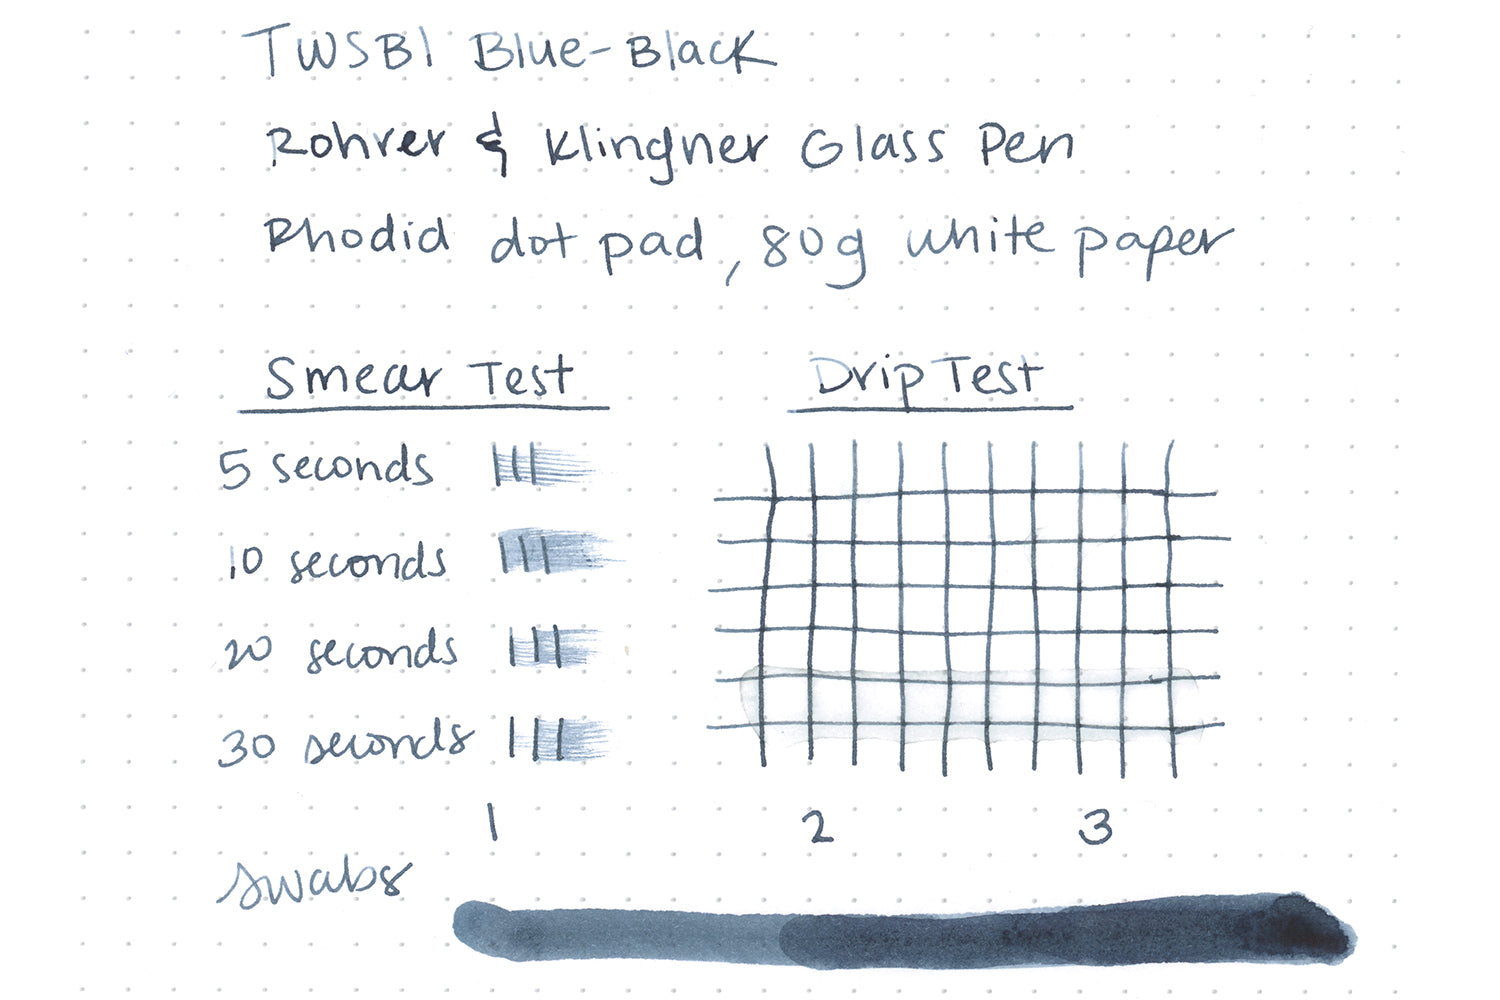 TWSBI Blue-Black
Rohrer & Klingner Glass Pen
Rhodid dot pad, 80g white paper
Smear Test
5 seconds
10 seconds
20 seconds
30 seconds
Drip Test
1 2 3
swabs